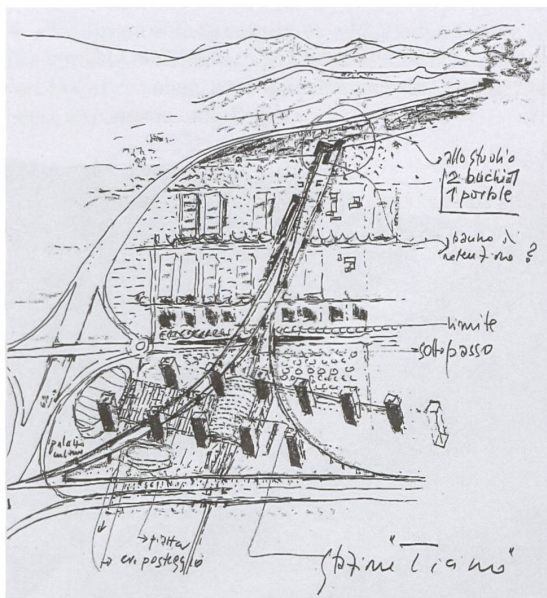 allo studio
2 buchi
1 portale
bacino di
retenzione?
limite
sottopasso
palazzo
piazza
ev. posteggio
stazione "Ticino"